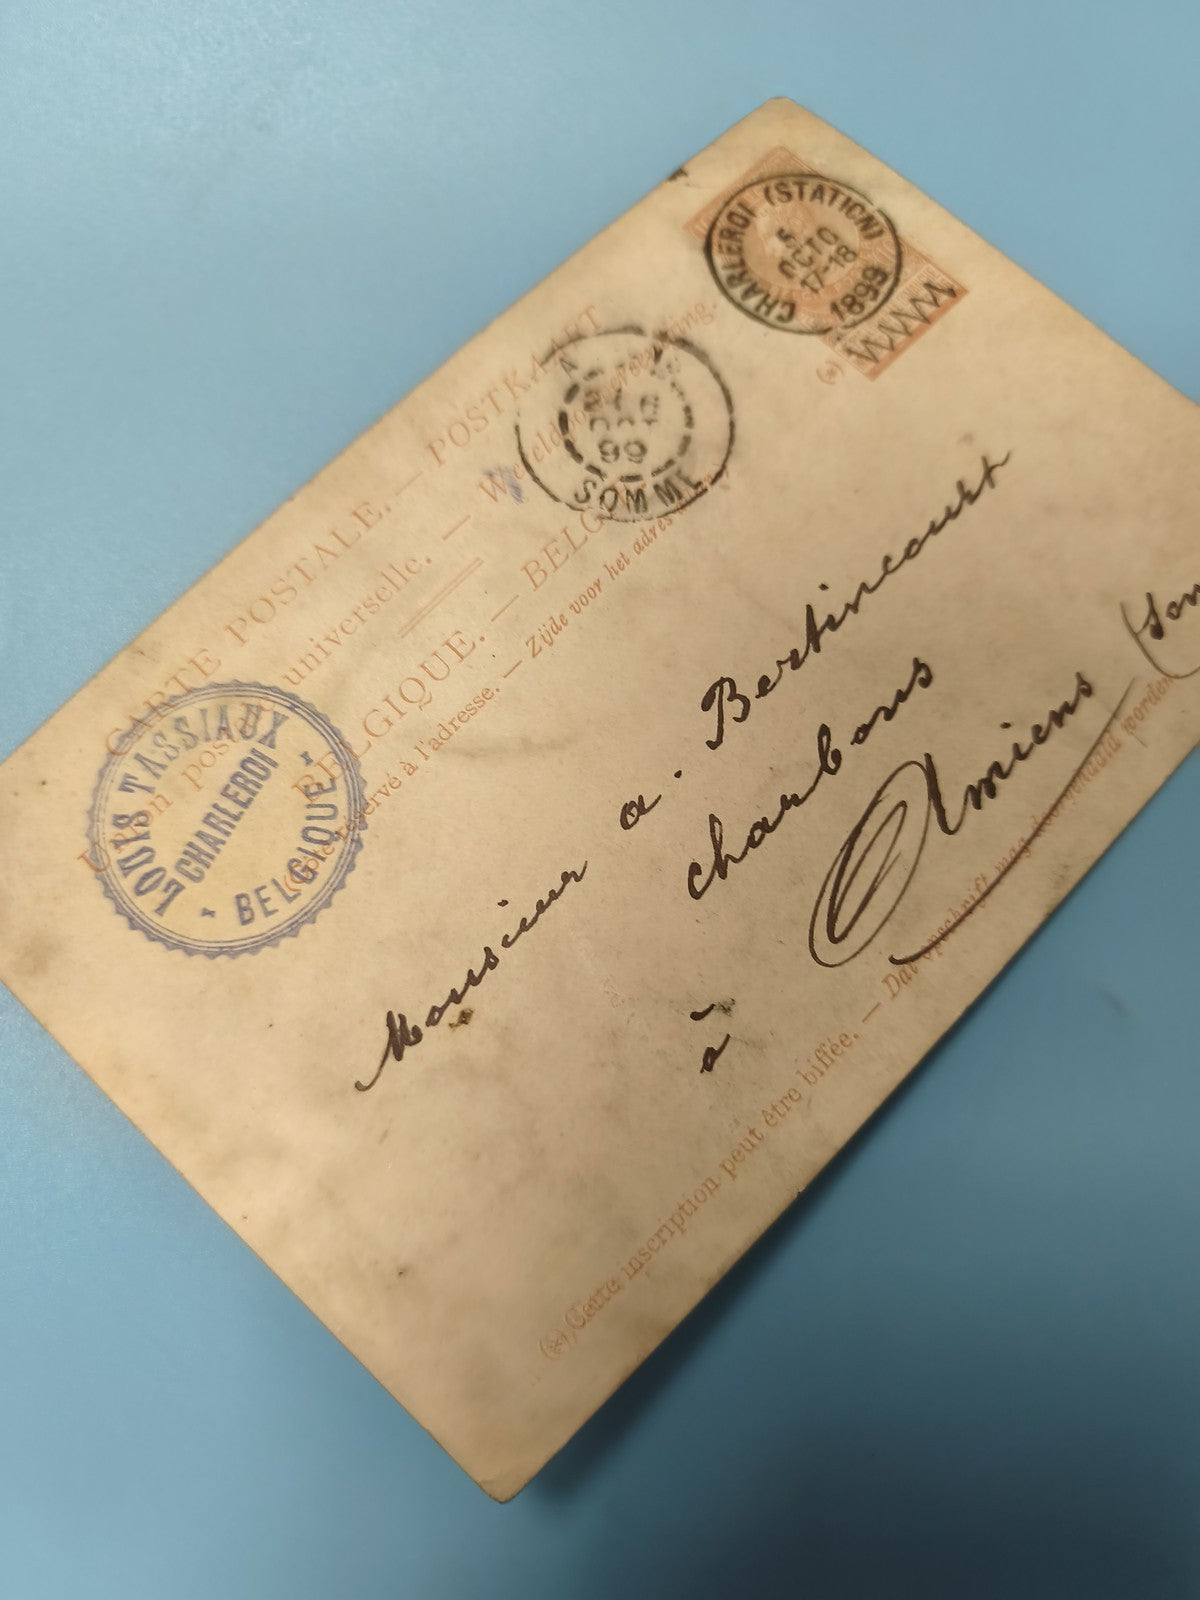 CARTE POSTALE. — POSTKAART
Union postale universelle. — Wereldpostvereeniging.
BELGIQUE. — BELGIË
(Côté réservé à l'adresse. — Zijde voor het adres
CHARLEROI (STATION)
5
OCTO
17-18
1899
(*)
99
SOMME
LOUIS TASSIAUX
CHARLEROI
BELGIQUE
Monsieur a. Bertincourt
charbons
à Amiens
(*) Cette inscription peut être biffée. — Dat opschrift mag doorgehaald worden